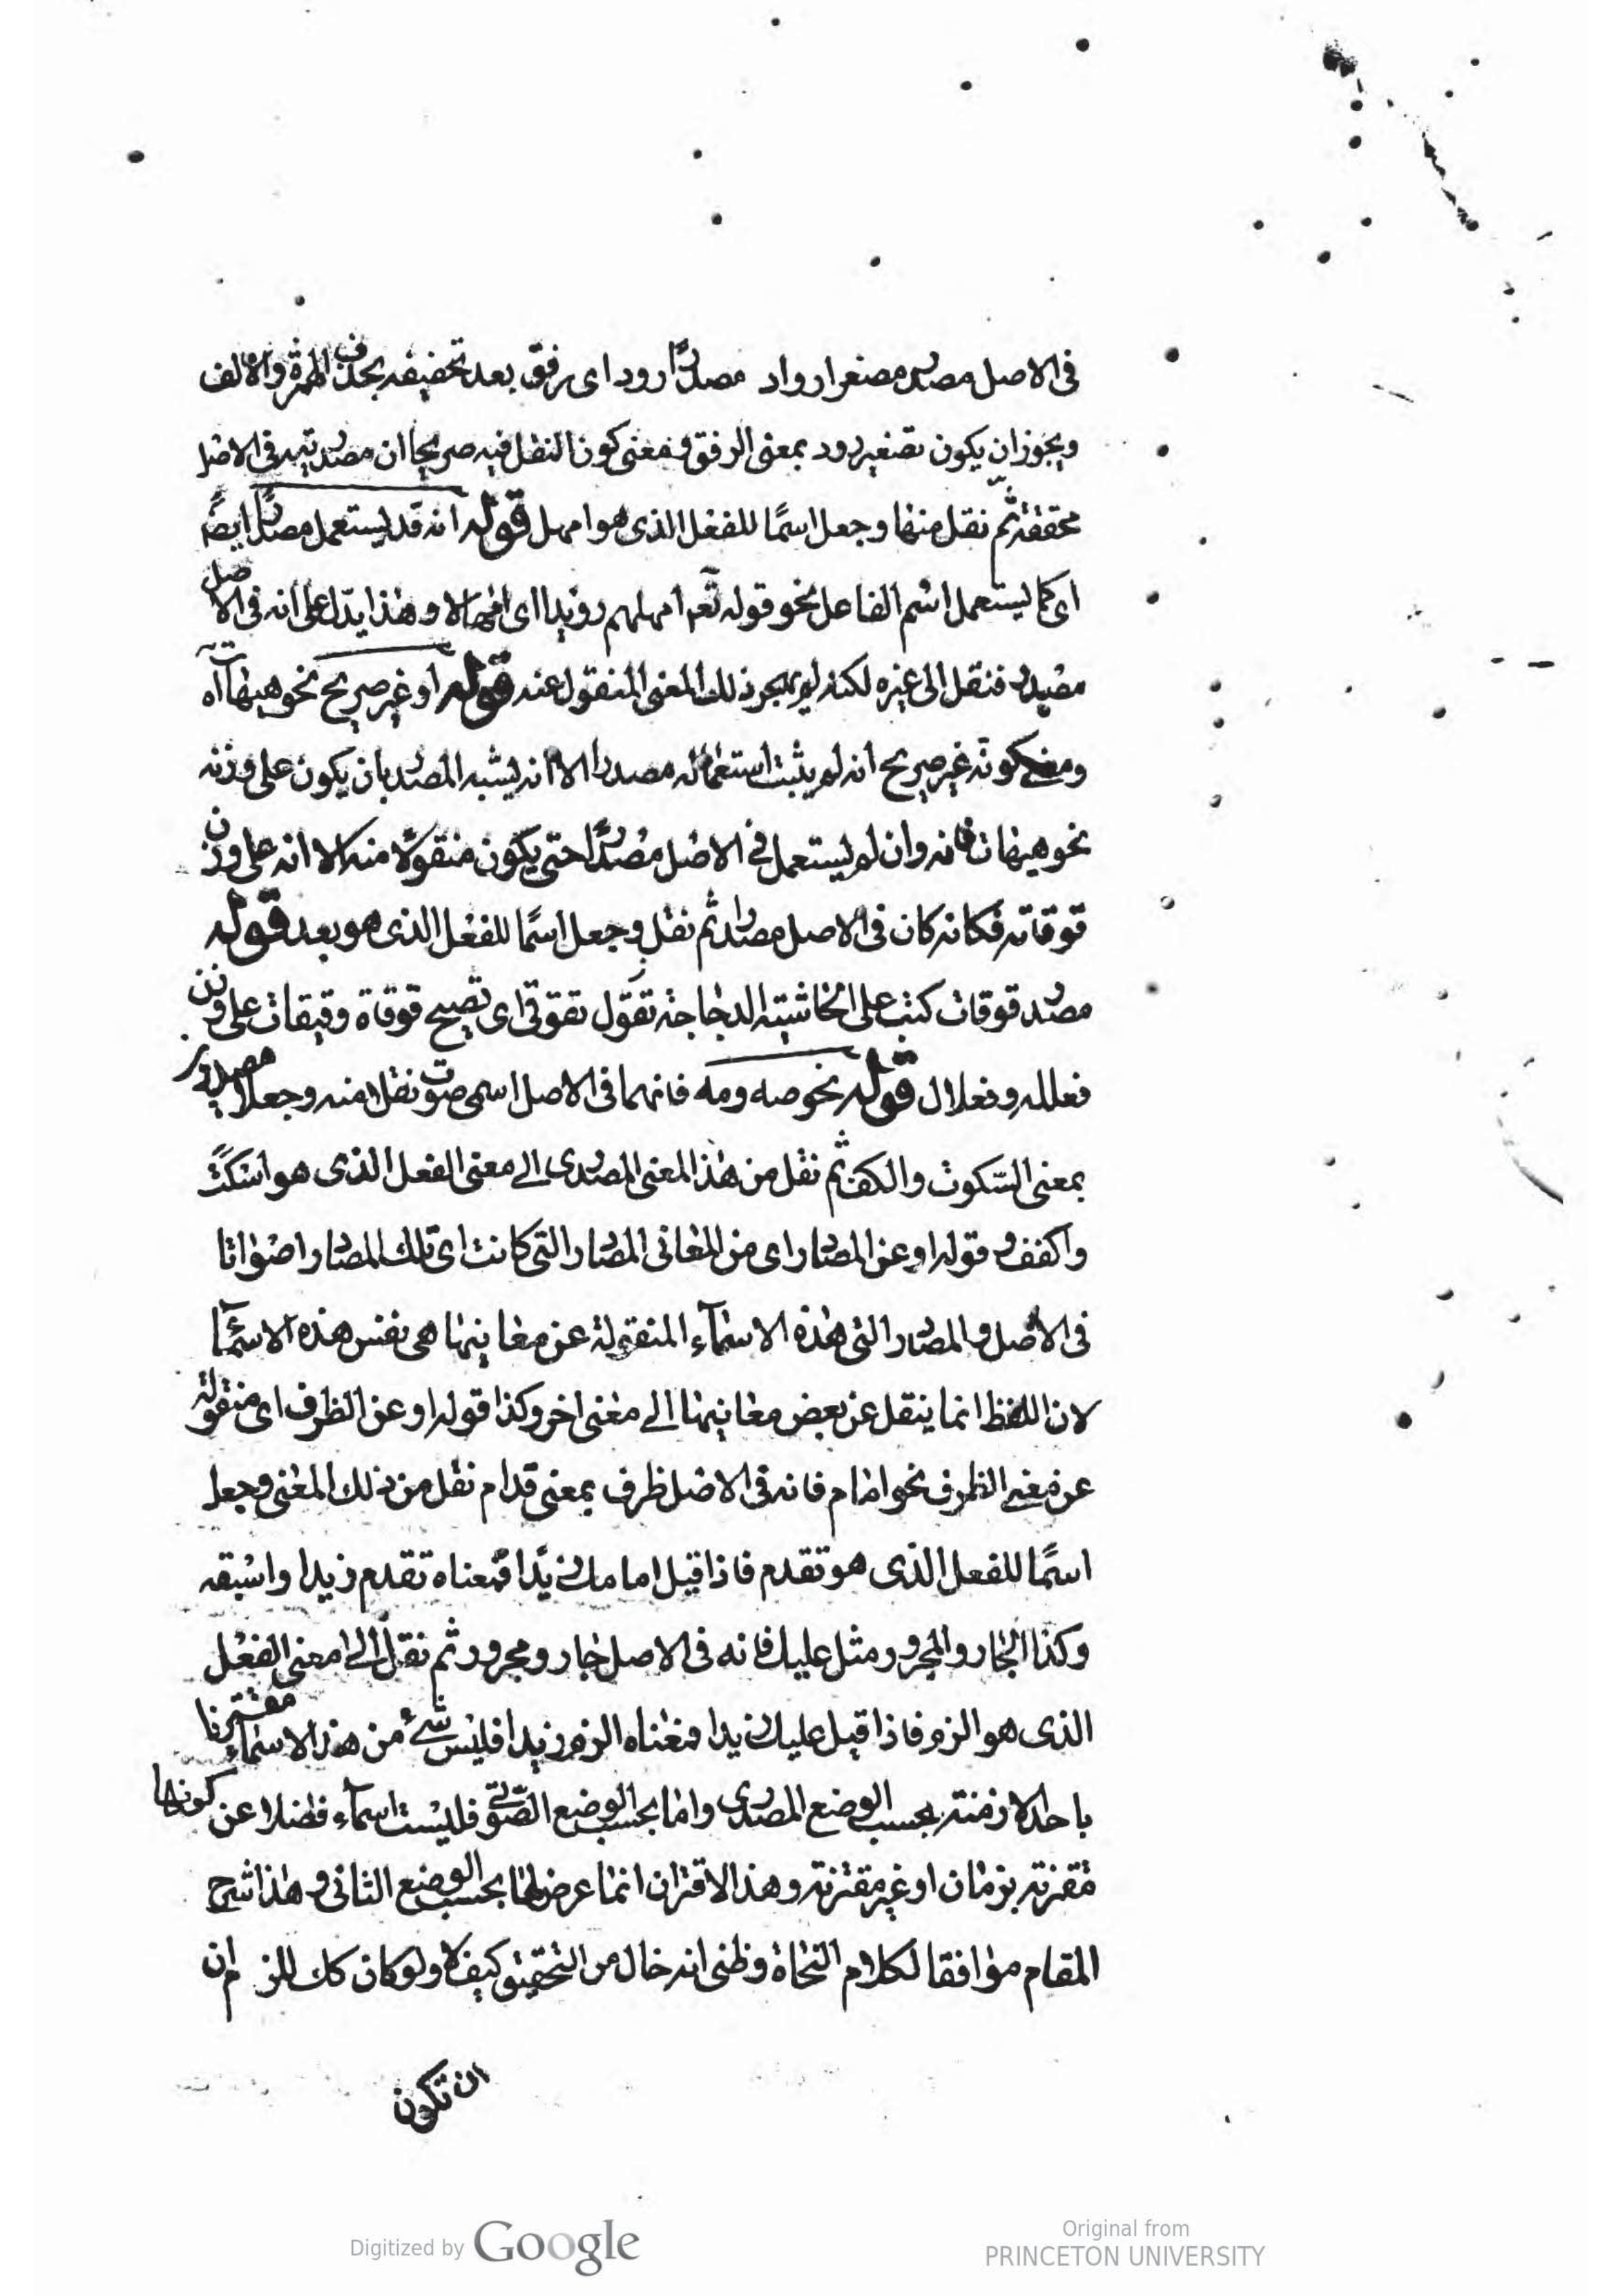 فى الاصل مصدر مصغرا رواد مصدرًا رود اى رفق بعد تخفيفه بحذف الهمزة والالف
ويجوز ان يكون تصغير رود بمعنى الرفق ومعنى كون النقل فيه صريحا ان مصدريته فى الاصل
محققة ثم نقل منها وجعل اسمًا للفعل الذى هو امهل قوله انه قد يستعمل مصدرًا ايضًا
اى كما يستعمل اسم الفاعل نحو قوله تعم امهلهم رويدا اى امهالا وهذا يدل على انه فى الاصل
مصدر فنقل الى غيره لكنه لم يهجر ذلك المعنى المنقول عنه قوله او غير صريح نحو هيهات اه
ومعنى كونه غير صريح انه لم يثبت استعماله مصدرا الا انه يشبه المصدر بان يكون على وزنه
نحو هيهات فانه وان لم يستعمل فى الاصل مصدرًا حتى يكون منقولًا منه الا انه على وزن
قوقاته فكانه كان فى الاصل مصدرا ثم نقل وجعل اسمًا للفعل الذى هو بعد قوله
مصدر قوقات كتب على الحاشية الدجاجة تقول تقوقى اى تصيح قوقاة وقيقات على وزن
فعللة وفعلال قوله نحو صه ومه فانهما فى الاصل اسمى صوت نقلا منه وجعلا مصدرين
بمعنى السكوت والكف ثم نقل من هذا المعنى المصدرى الى معنى الفعل الذى هو اسكت
واكفف وقوله او عن المصادر اى من المعانى المصادر التى كانت اى تلك المصادر اصواتا
فى الاصل والمصادر التى هذه الاسماء المنقولة عن معانيها هى نفس هذه الاسماء
لان اللفظ انما ينقل عن بعض معانيها الى معنى اخر وكذا قوله او عن الظرف اى منقولة
عن معنى الظرف نحو امام فانه فى الاصل ظرف بمعنى قدام نقل من ذلك المعنى وجعل
اسمًا للفعل الذى هو تقدم فاذا قيل امامك زيدًا فمعناه تقدم زيدا واسبقه
وكذا الجار والمجرور مثل عليك فانه فى الاصل جار ومجرور ثم نقل الى معنى الفعل
الذى هو الزم فاذا قيل عليك زيدا فمعناه الزم زيدا فليس شئ من هذه الاسماء مقترنا
باحد الازمنة بحسب الوضع المصدرى واما بحسب الوضع الصوتى فليست اسماء فضلا عن كونها
مقترنة بزمان او غير مقترنة وهذا الاقتران انما عرض لها بحسب الوضع الثانى وهذا شرح
المقام موافقا لكلام النحاة وظنى انه خال من التحقيق كيف لا ولو كان كك للزم ان
ان تكون
Digitized by Google
Original from
PRINCETON UNIVERSITY